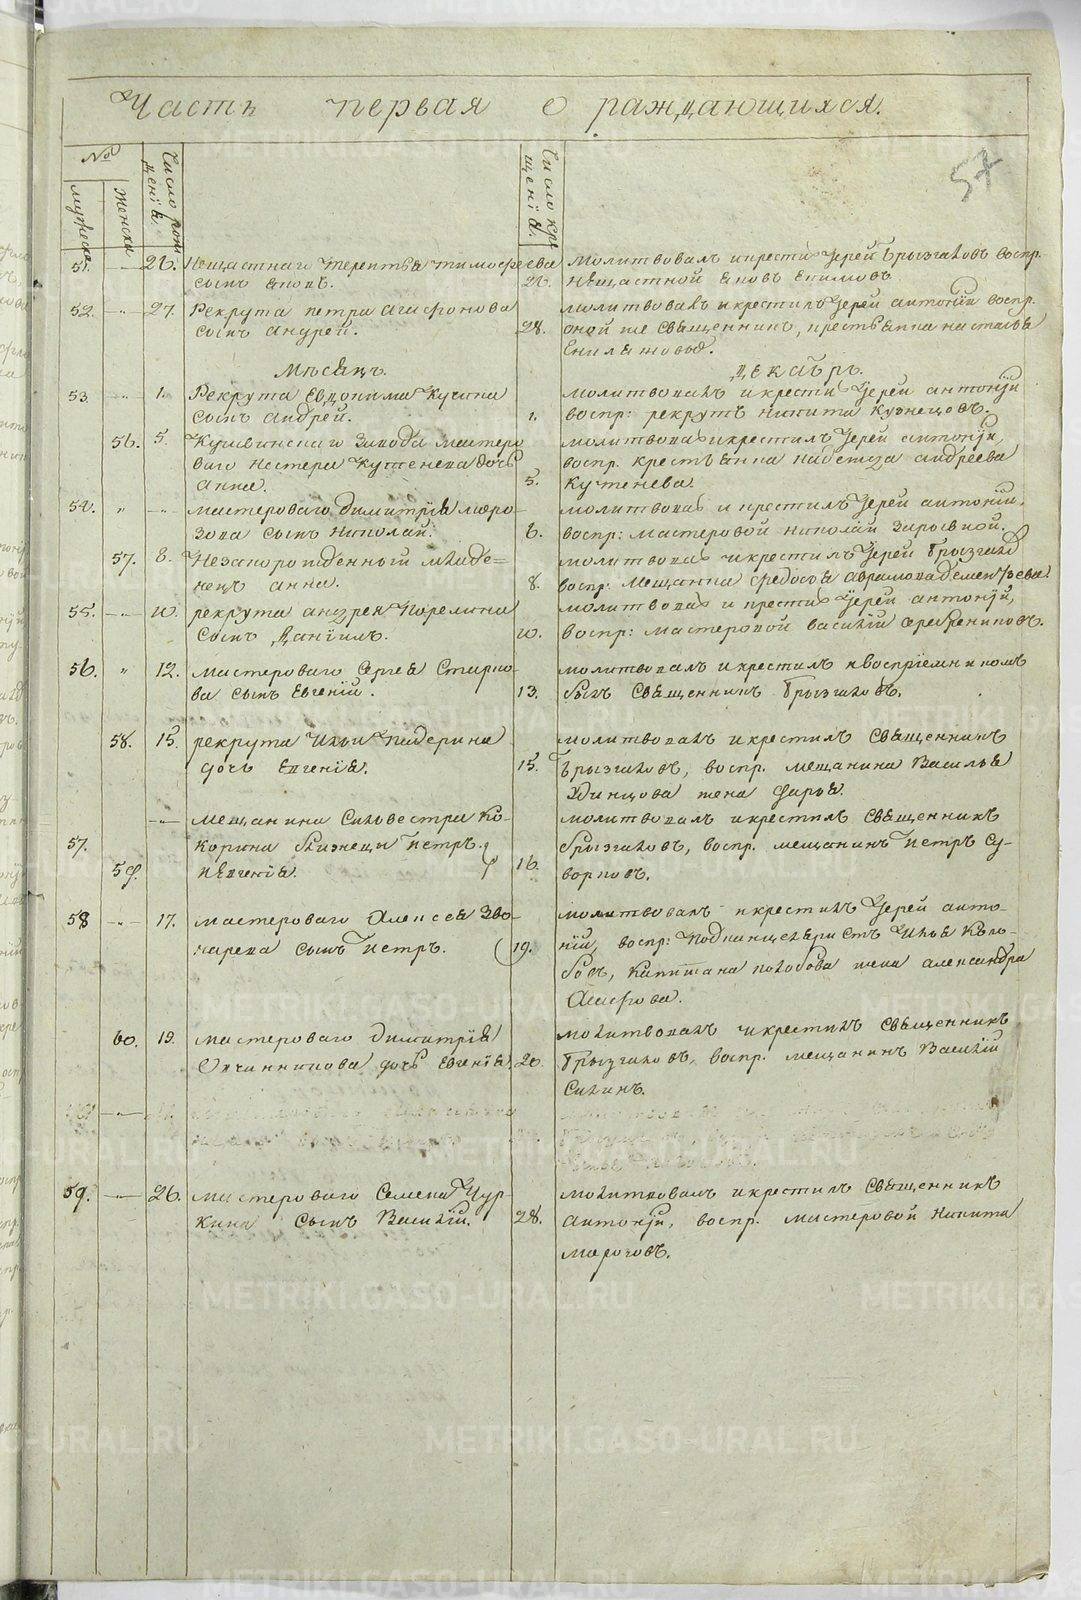 Часть первая о раждающихся.
57
№
Мужеска
Женска
Число рож
денія.
Число кре
щенія.
51. 26. Нещастнаго Терентья Тимофеева
сынъ
26.
Молитвовалъ и крести Іерей Брызгаловъ воспр.
Нещастной
52. 27. Рекрута Петра Агафонова
сынъ Андрей.
28.
молитвовалъ и крестилъ Іерей Антоній воспр.
оной же священникъ, крестьянка Настасья
Мѣсяцъ. Декабрь.
53. 1. Рекрута Евдокима Кучина
сынъ Андрей.
1.
молитвовалъ и крести Іерей Антоній
воспр: рекрутъ Никита Кузнецовъ.
56. 5. Кушвинскаго завода мастеро
ваго Нестера Кутенева дочь
Анна.
5.
молитвова и крестилъ Іерей Антоній,
воспр. крестьянка Надежда Андреева
Кутенева.
54. " " мастероваго Димитрія Моро-
зова сынъ Николай.
6.
молитвова и крестилъ Іерей Антоній,
воспр: мастеровой Николай
57. 8. Незаконорожденный младе=
нецъ Анна.
8.
молитвова и крестилъ Іерей Брызгало
воспр: Мещанка Федосья Аврамова Дементьева.
55. 10. рекрута Андрея
сынъ Даніилъ.
10.
молитвова и крести Іерей Антоній,
воспр: мастеровой Василій Серебрениковъ.
56. " 12. мастероваго Сергея Смирно-
ва сынъ Евгеній.
13.
молитвовалъ и крестилъ и воспріемникомъ
былъ священникъ Брызгаловъ.
58. 15. рекрута Ильи Падерина
дочь Евгенія.
15.
молитвовалъ и крестилъ священникъ
Брызгаловъ, воспр. мещанина Василья
Одинцова жена Дарья.
57. мещанина Силвестра Ко-
корина близнецы Петръ.
59. и Евгенія.
16.
молитвовалъ и крестилъ священникъ
Брызгаловъ, воспр. мещанинъ Петръ Су-
ворковъ.
58 17. мастероваго Алексея Зво-
нарева сынъ Петръ.
19.
молитвовалъ и крестилъ Іерей Анто-
ній, воспр: Подканцеляристъ Илья Коло-
бовъ, Капитана жена Александра
60. 19. мастероваго Димитрія
Овчинникова дочь Евгенія,
20.
молитвовалъ и крестилъ священникъ
Брызгаловъ, воспр. мещанинъ Василій
Силинъ.
59. 26. мастероваго Семена Чур-
кина сынъ Василій.
28.
молитвовалъ и крестилъ священникъ
Антоній, воспр. мастеровой Никита
Морозовъ.
METRIKI.GASO-URAL.RU